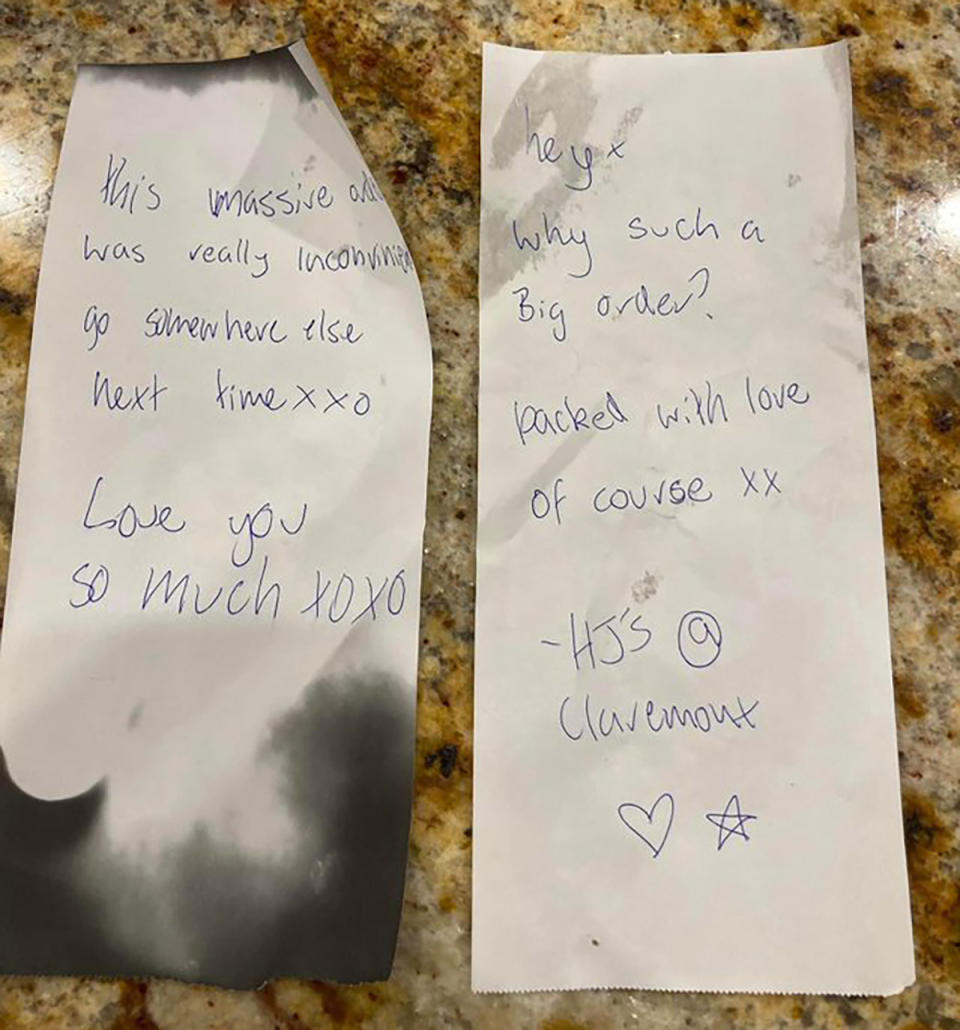 this massive
was really
go somewhere else
next time xxo
Love you
so much xoxo
hey x
why such a
Big order?
packed with love
of course xx
-HJ's @
Claremont